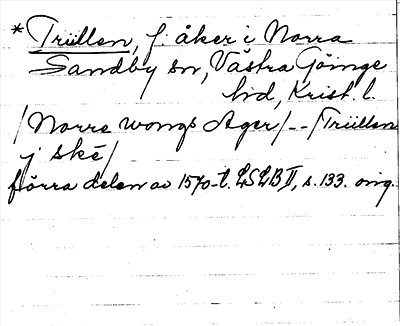 *Trüllen, f. åker i Norra
Sandby sn, Västra Göinge
hd, Krist. l.
/Norre wongs Ager/--/Trüllen
j skē/
förra delen av 1570-t. LSLB II, s. 133. orig.